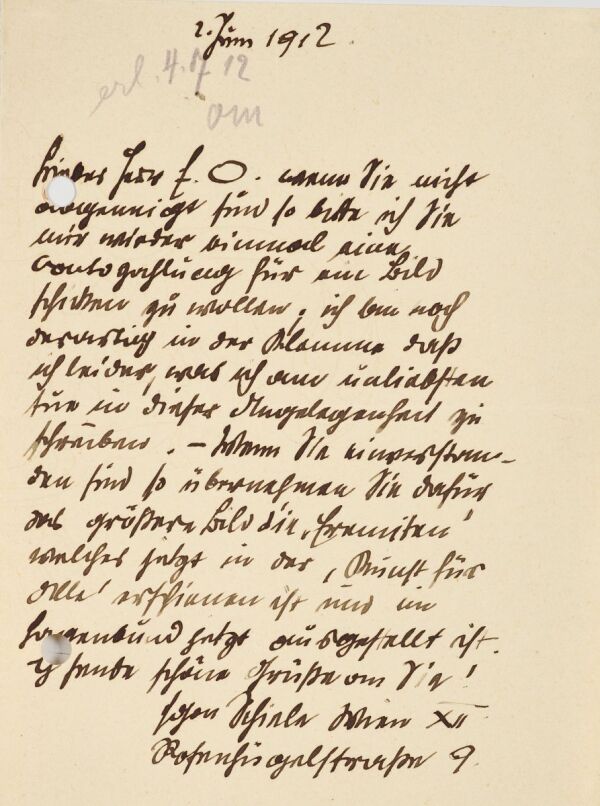 2. Juni 1912.
erl. 4. 12
om
Lieber Herr F. O. wenn Sie nicht
abgeneigt sind so bitte ich Sie
mir wieder einmal eine
Contozahlung für ein Bild
schicken zu wollen, ich bin noch
derartig in der Klemme daß
ich leider, was ich am unliebsten
tue in dieser Angelegenheit zu
schreiben. – Wenn Sie einverstan-
den sind so übernehmen Sie dafür
das größere Bild die 'Eremiten'
welches jetzt in der 'Kunst für
Alle' erschienen ist und im
Hagenbund jetzt ausgestellt ist.
Ich sende schöne Grüße an Sie!
Egon Schiele Wien XII
Rosenhügelstraße 9.